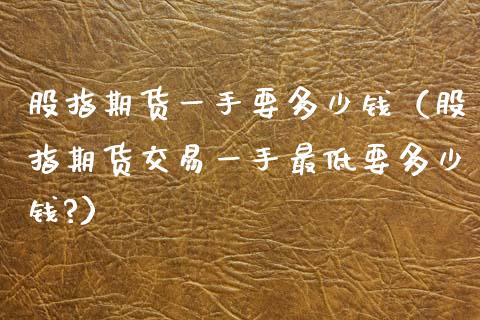 股指期货一手要多少钱（股
指期货交易一手最低要多少
钱?）